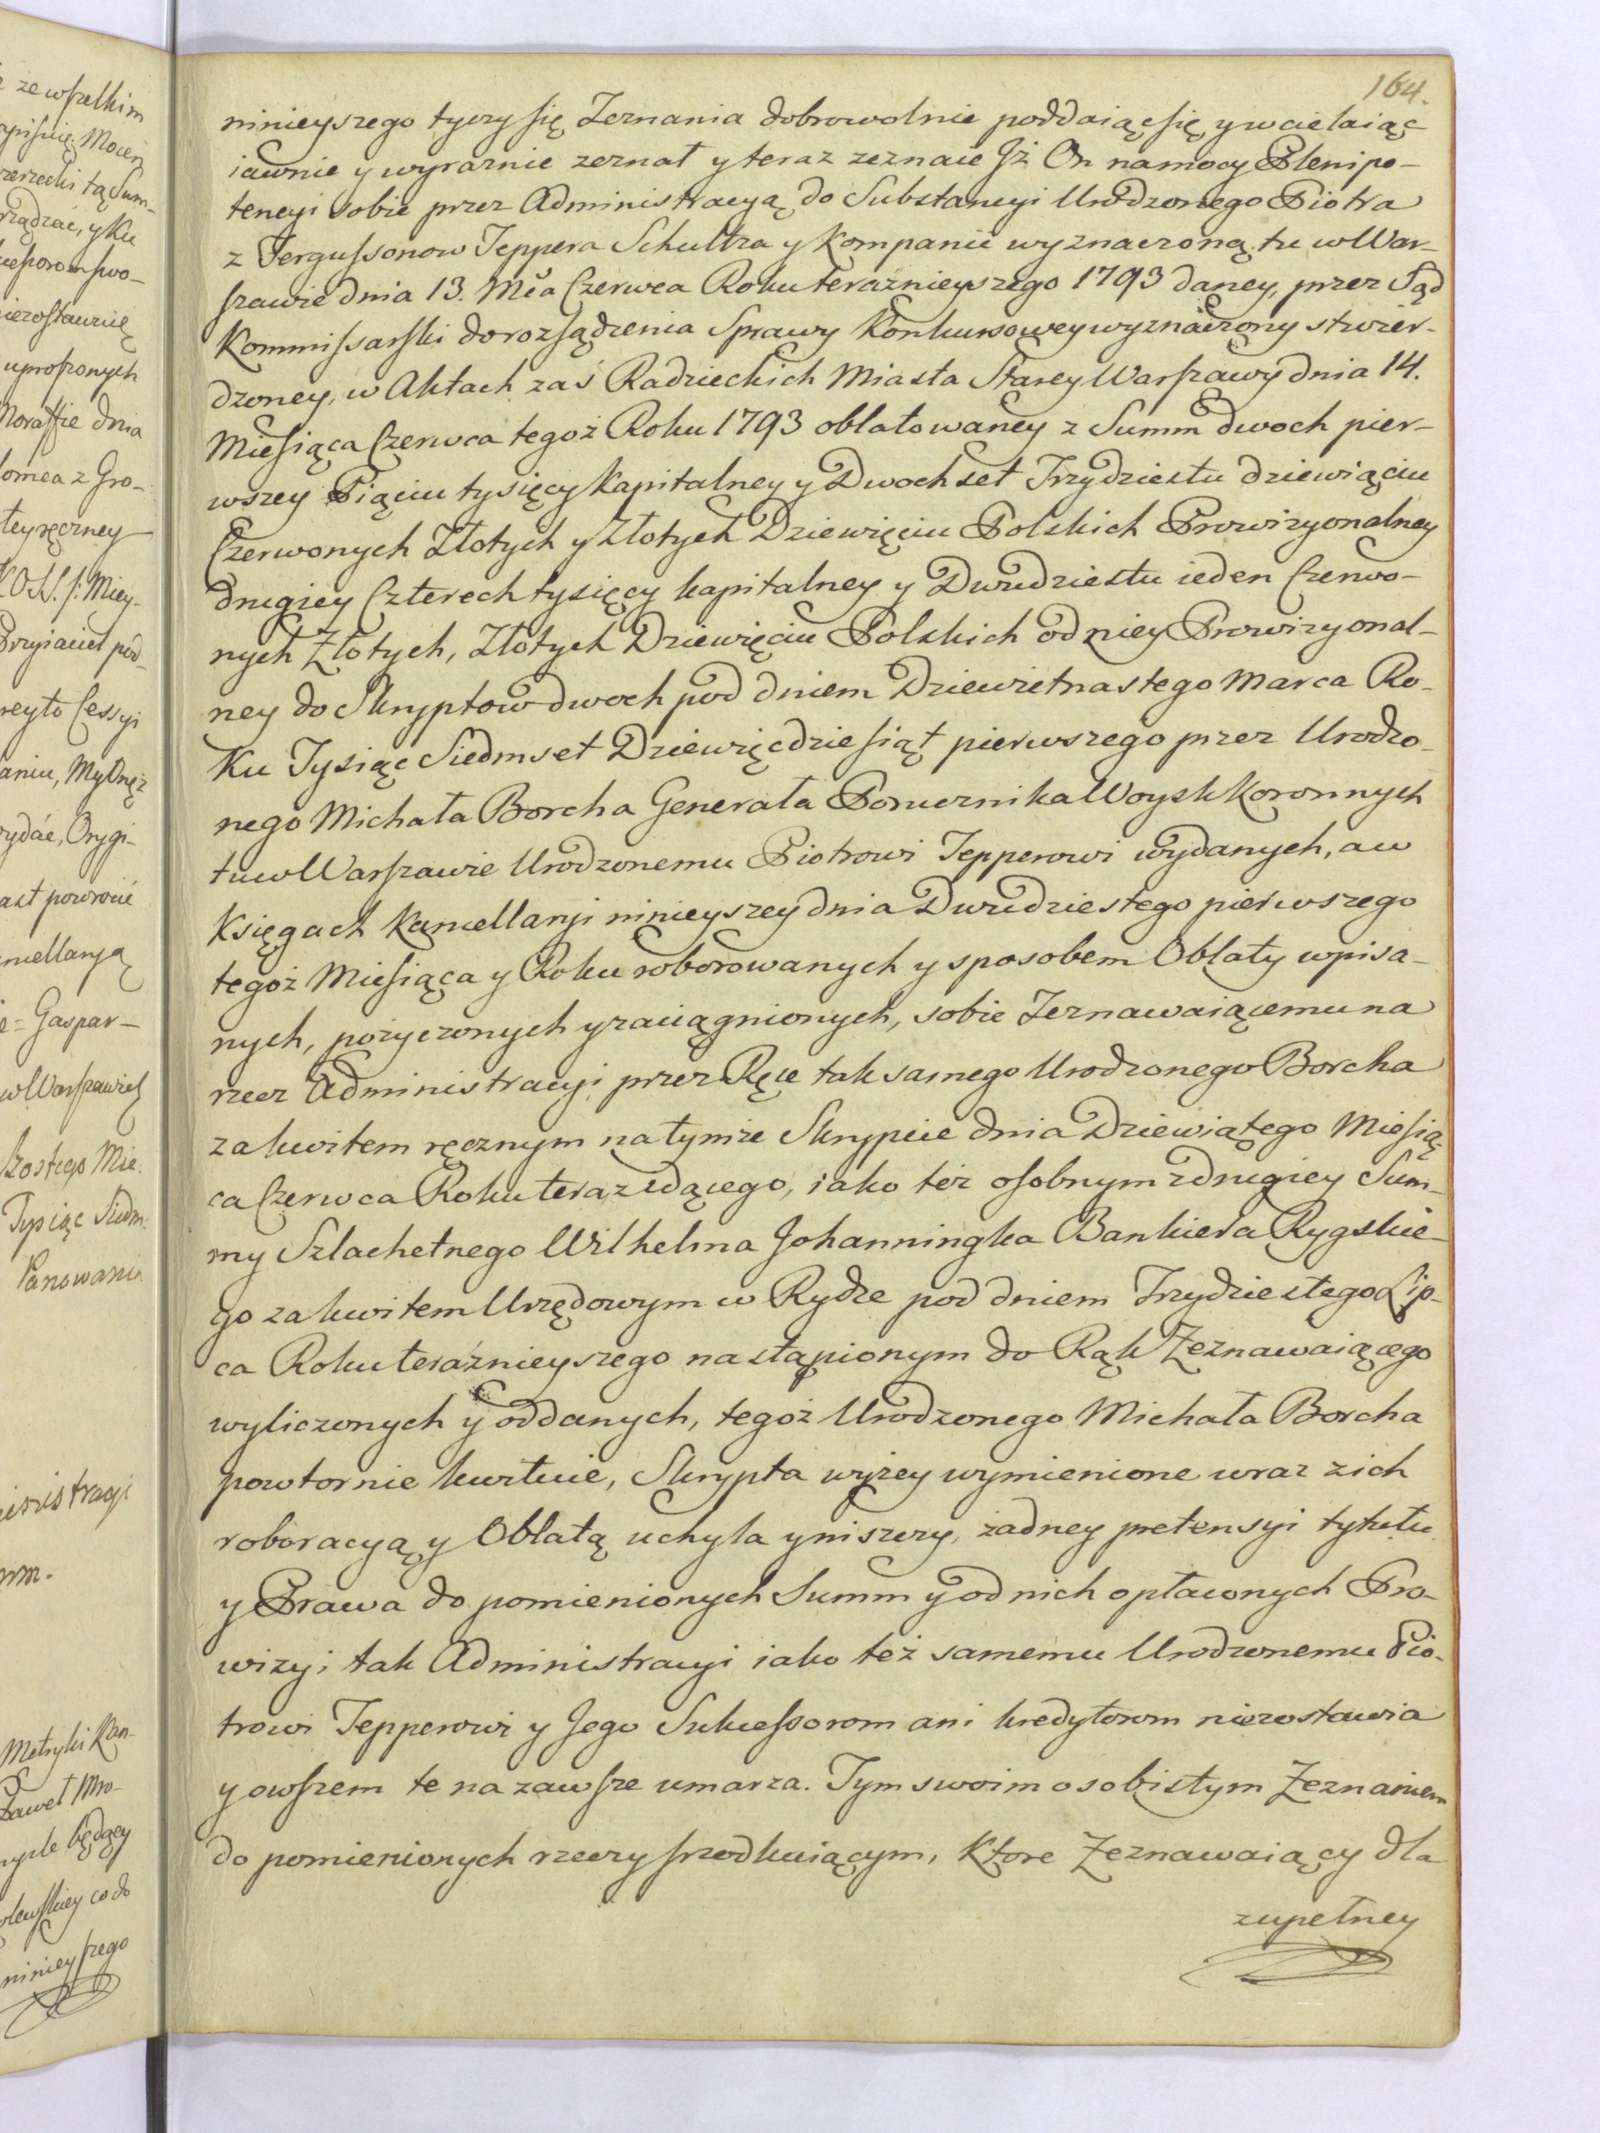 164.
ninieyszego tyczy się Zeznania dobrowolnie poddaiąc się y wcielaiąc
iawnie y wyraznie zeznał y teraz zeznaie Jż On na mocy Plenipo-
tencyi sobie przez Administracyą do Substancyi Urodzonego Piotra
z Fergussonow Teppera Schultza y Kompanii wyznaczoną tu w War-
szawie dnia 13. Mca Czerwca Roku teraznieyszego 1793 daney, przez Sąd
Kommissarski do rozsądzenia Sprawy Konkursowey wyznaczony stwier-
dzoney, w Aktach zaś Radzieckich Miasta Starey Warszawy dnia 14.
Miesiąca Czerwca tegoż Roku 1793 oblatowaney z Summ dwoch pier-
wszey Piąciu tysięcy kapitalney y Dwochset Trzydziestu dziewiąciu
Czerwonych Złotych y Złotych Dziewięciu Polskich Prowizyonalney
drugiey Czterech tysięcy kapitalney y Dwudziestu ieden Czerwo-
nych Złotych, Złotych Dziewięciu Polskich od niey Prowizyonal-
ney do Skryptow dwoch pod dniem Dziewietnastego Marca Ro-
ku Tysiąc Siedmset Dziewięcdziesiąt pierwszego przez Urodzo-
nego Michała Borcha Generała Porucznika Woysk Koronnych
tu w Warszawie Urodzonemu Piotrowi Tepperowi wydanych, a w
Księgach Kancellaryi ninieyszey dnia Dwudziestego pierwszego
tegoż Miesiąca y Roku roborowanych y sposobem Oblaty wpisa-
nych, pożyczonych y zaciągnionych, sobie Zeznawaiącemu na
rzecz Administracyi przez Ręce tak samego Urodzonego Borcha
za kwitem ręcznym na tymże Skrypcie dnia Dziewiątego Miesią
ca Czerwca Roku teraz idącego, iako też osobnym z drugiey Sum-
my Szlachetnego Wilhelma Johanningka Bankiera Rygskie-
go za kwitem Urzędowym w Rydze pod dniem Trzydziestego Lip-
ca Roku teraźnieyszego nastąpionym do Rąk Zeznawaiącego
wyliczonych y oddanych, tegoż Urodzonego Michała Borcha
powtornie kwituie, Skrypta wyżey wymienione wraz z ich
roboracyą y Oblatą uchyla y niszczy, żadney pretensyi tytułu
y Prawa do pomienionych Summ y od nich opłaconych Pro-
wizyi tak Administracyi iako też samemu Urodzonemu Pio-
trowi Tepperowi y Jego Sukcessorom ani kredytorom niezostawia
y owszem te na zawsze umarza. Tym swoim osobistym Zeznaniem
do pomienionych rzeczy srzodkuiącym, Ktore Zeznawaiący dla
zupełney